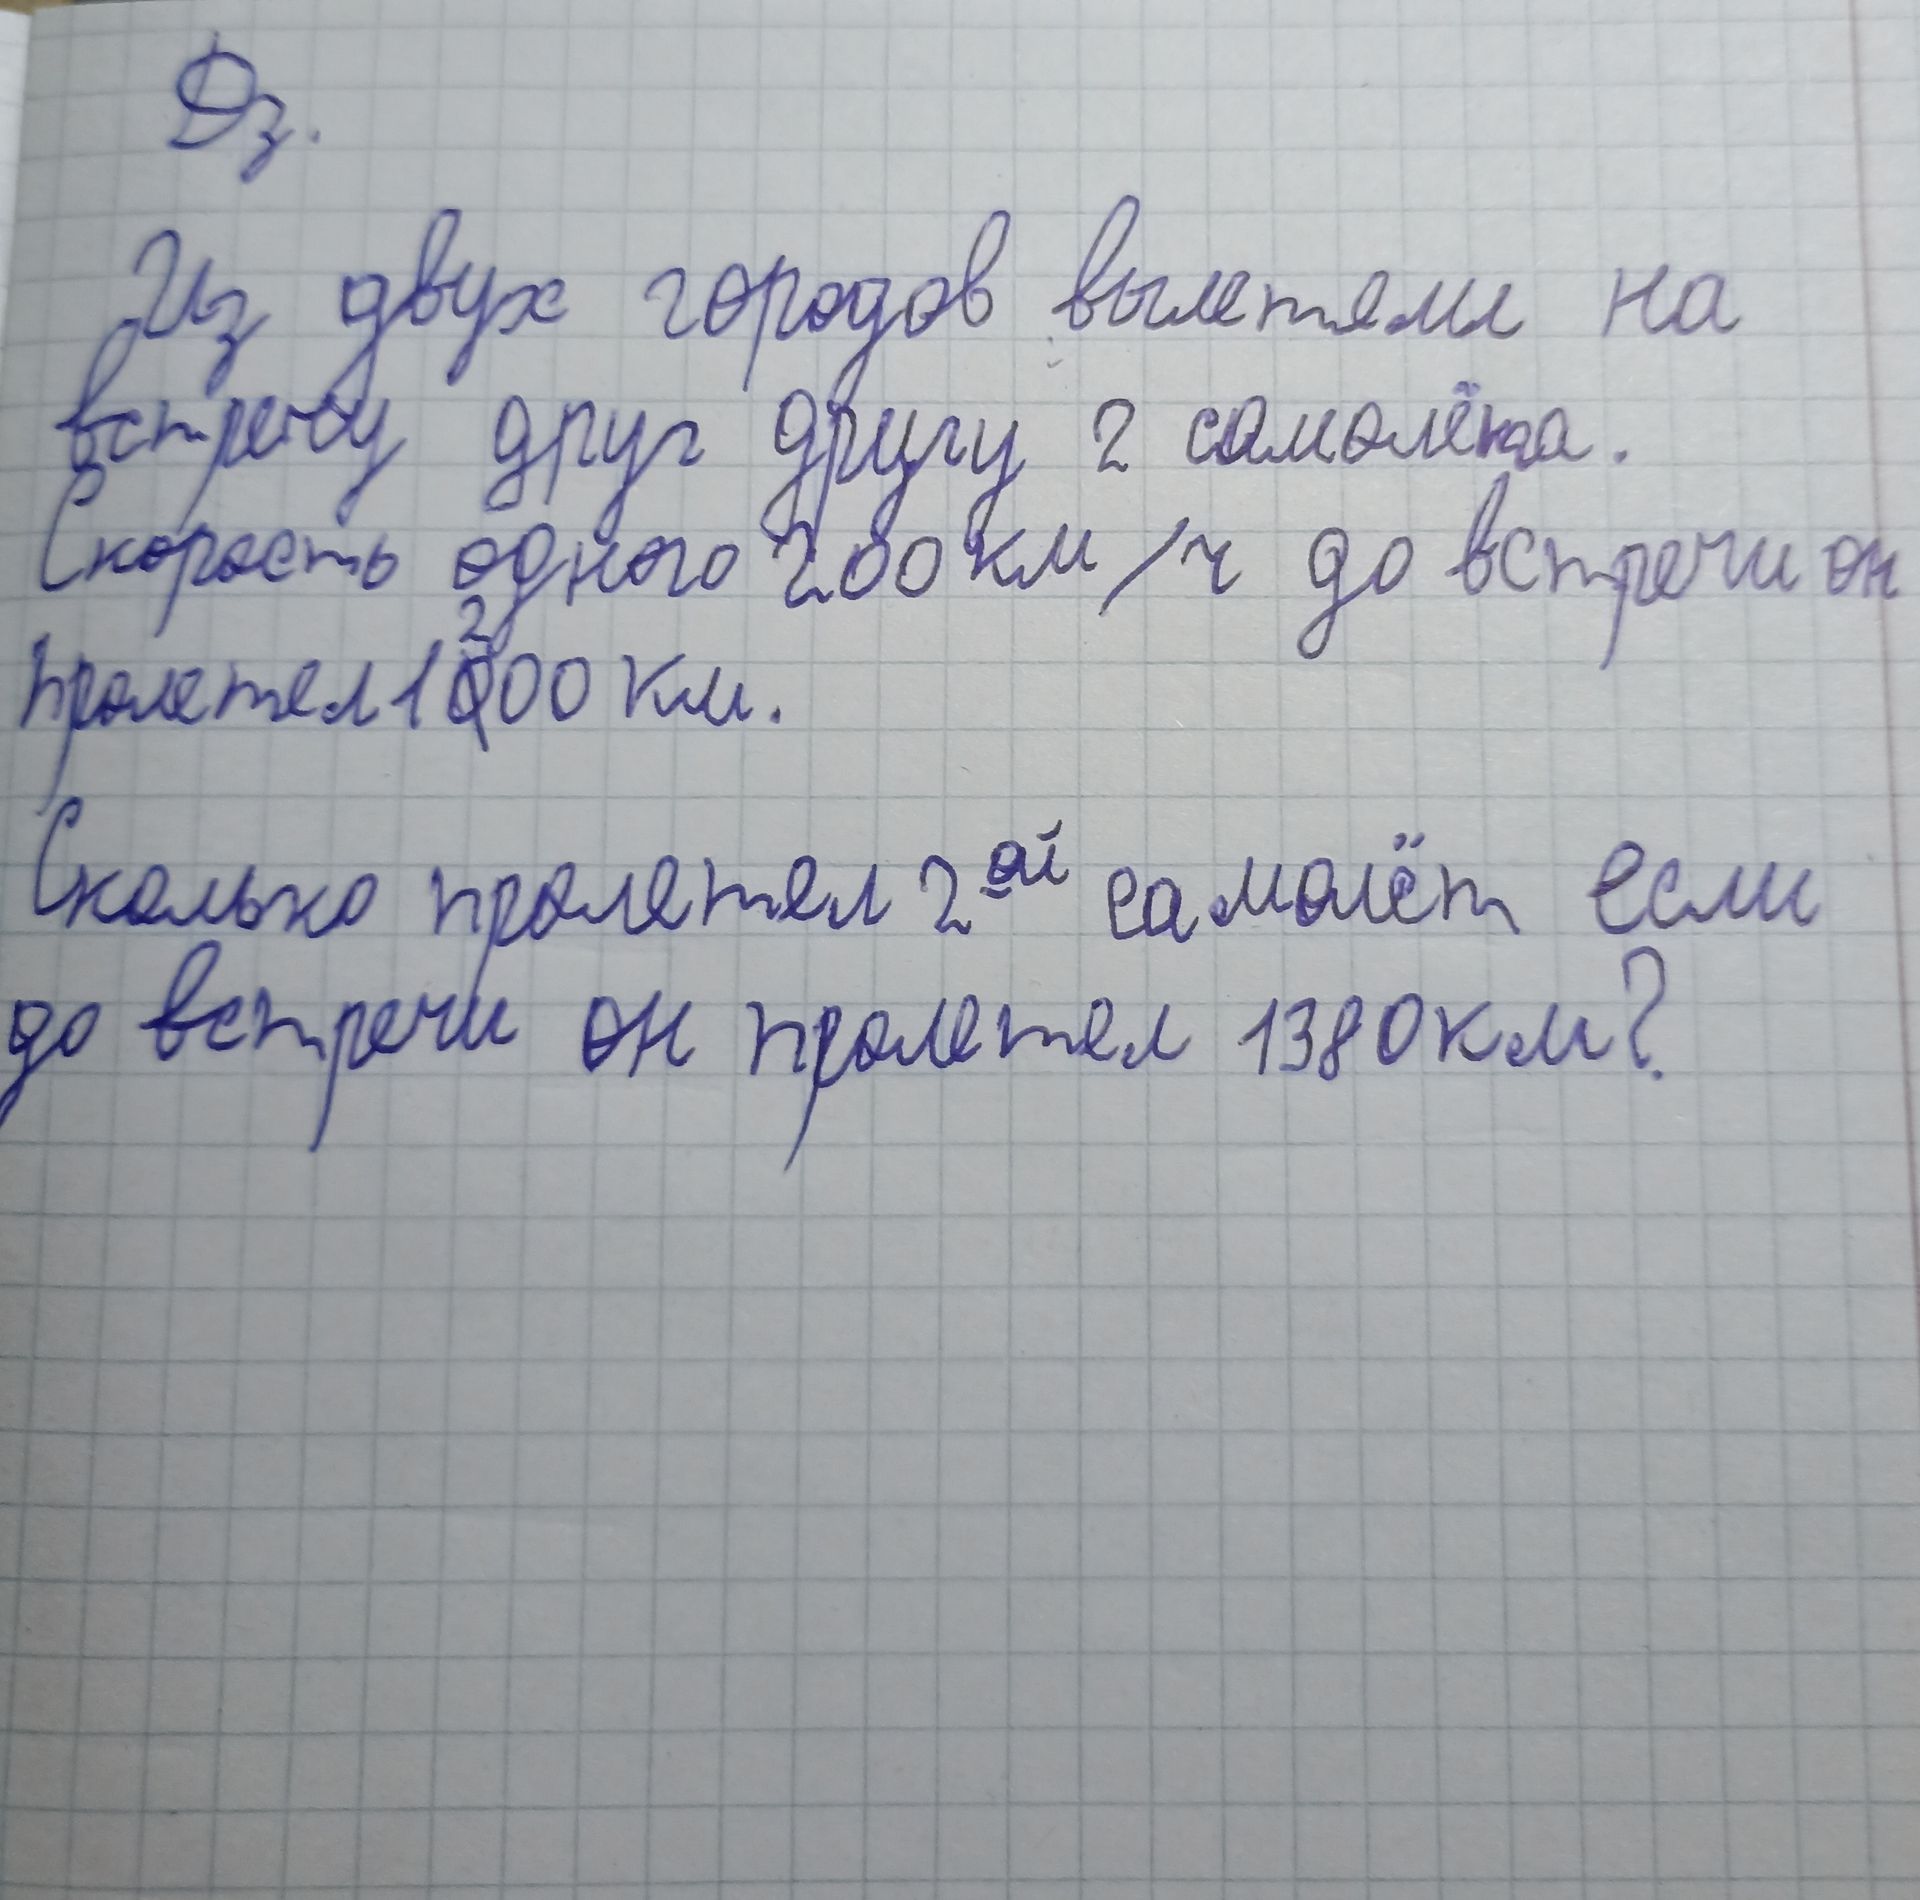 Дз.
Из двух городов вылетели на
встречу друг другу 2 самолёта.
Скорость одного 200 км/ч до встречи он
пролетел 1200 км.
Сколько пролетел 2ой самолёт если
до встречи он пролетел 1380 км?